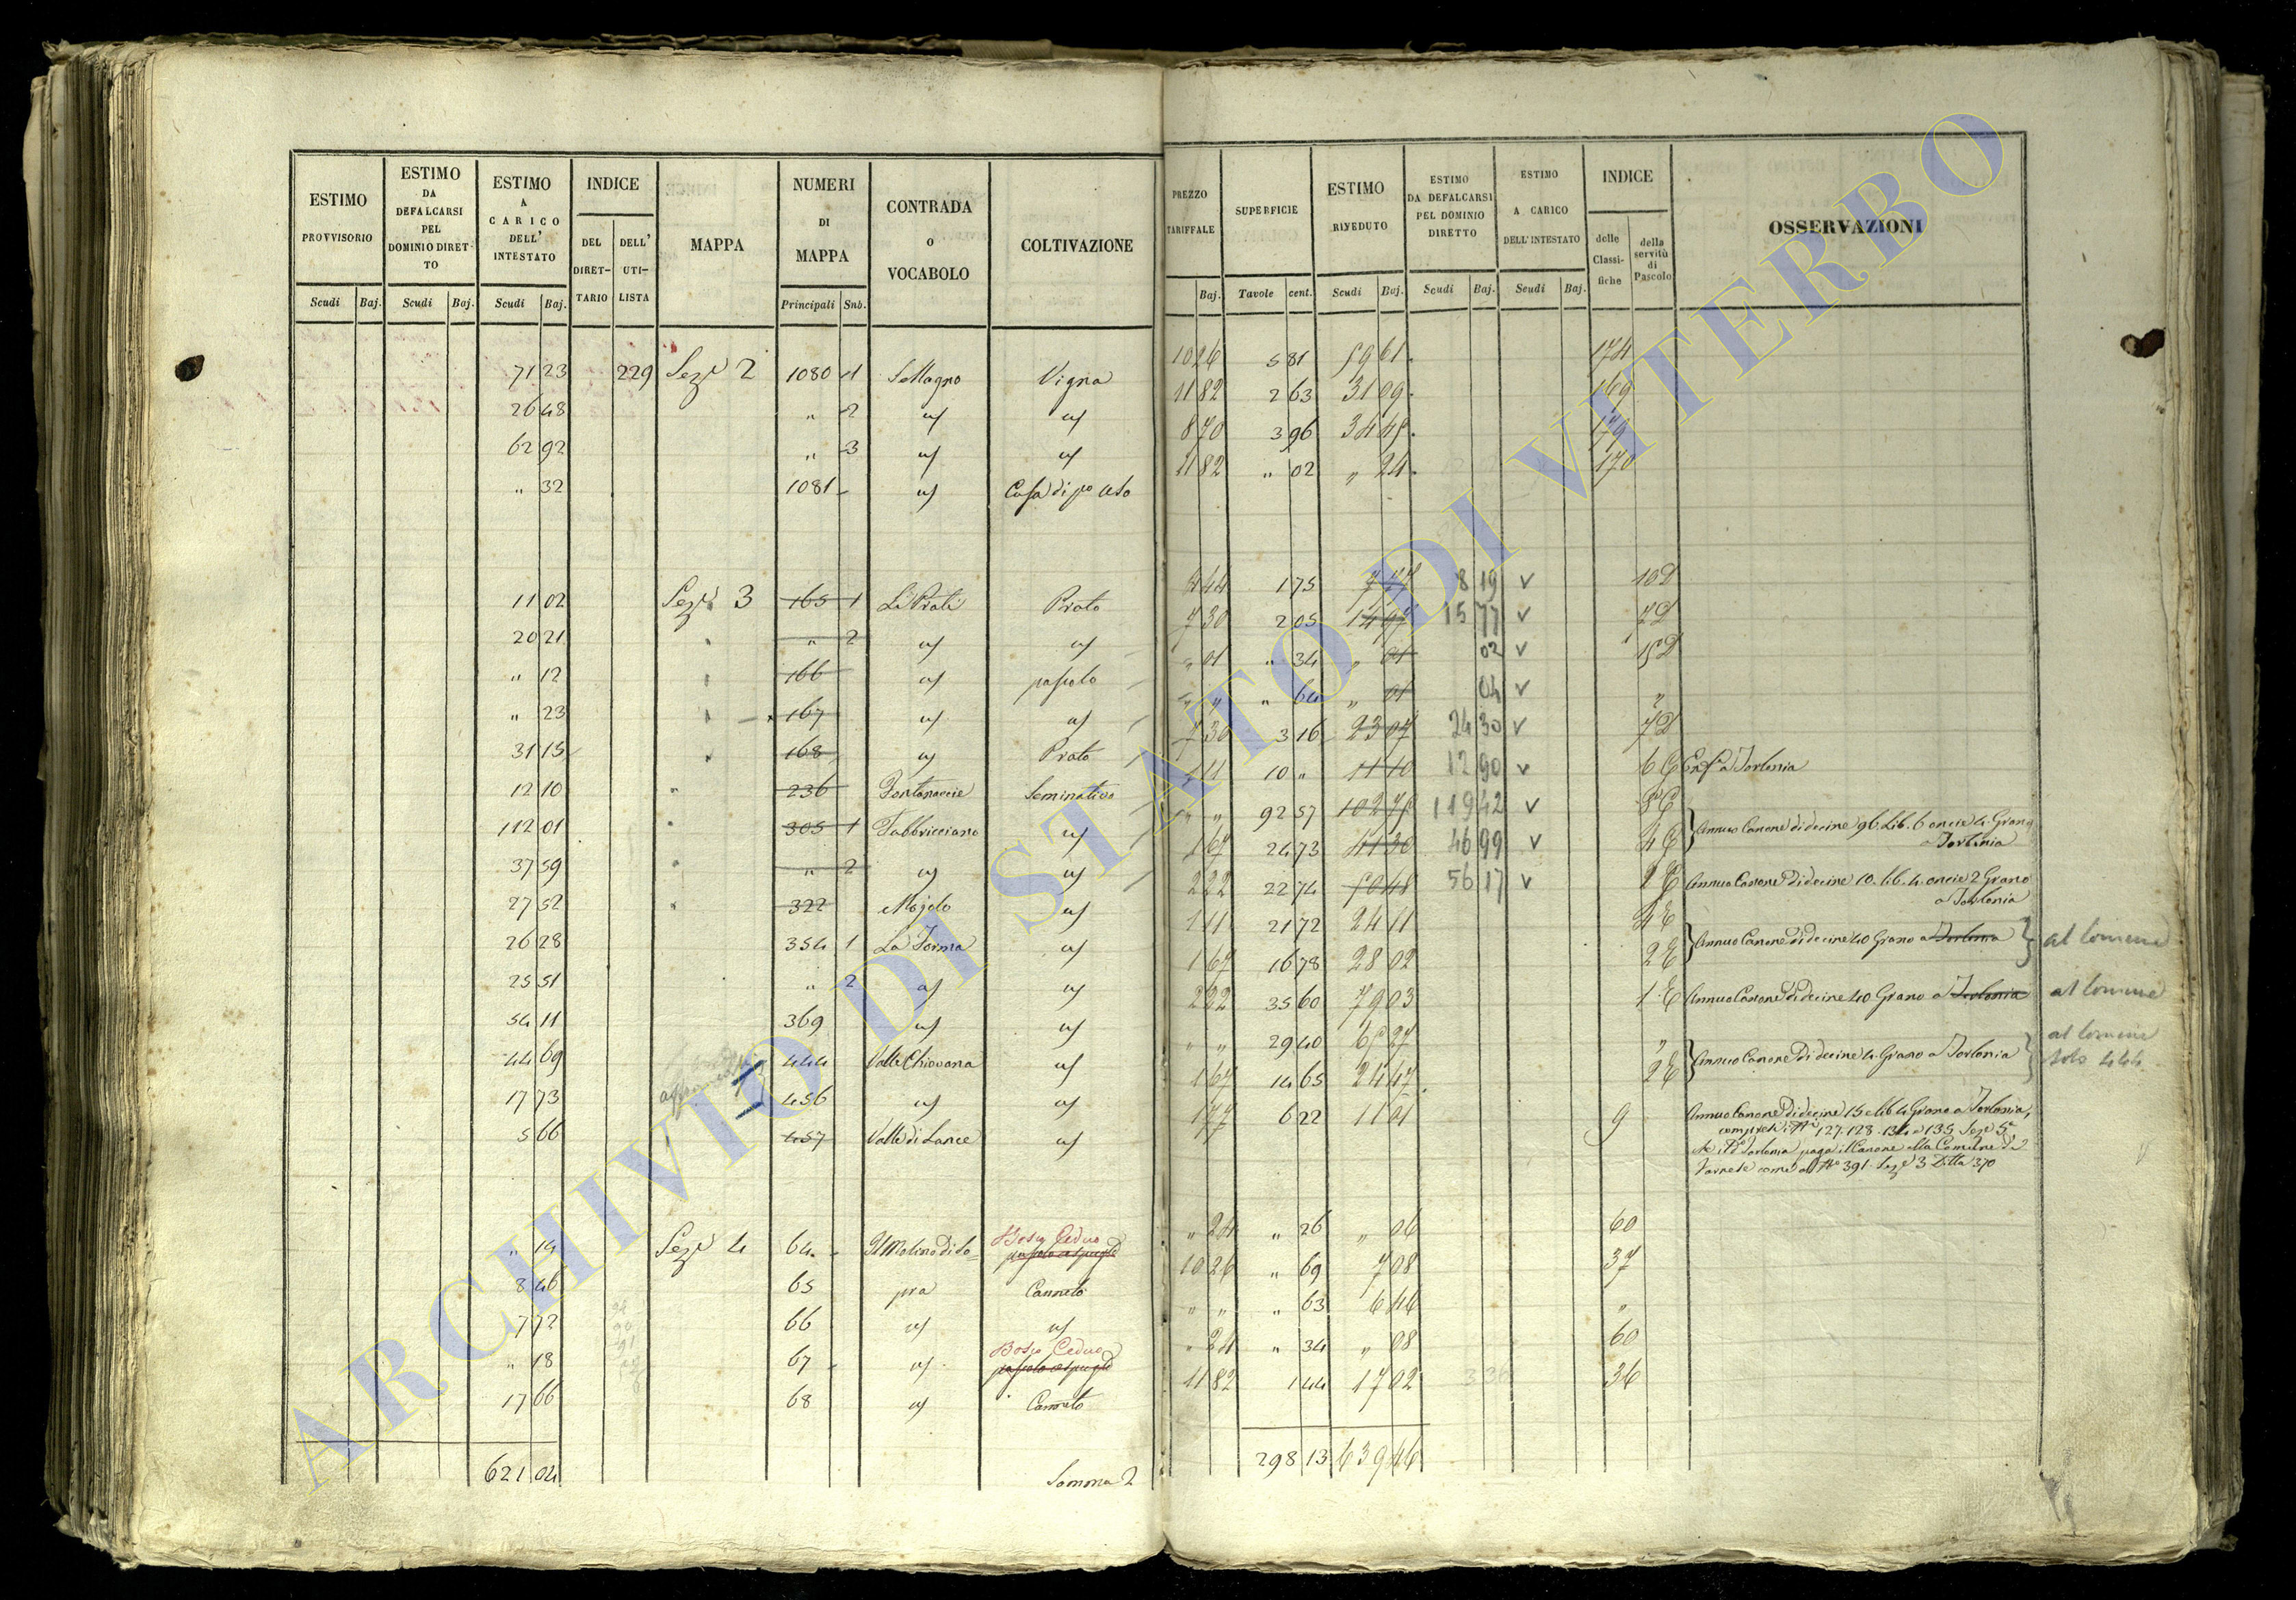 ESTIMO PROVVISORIO | ESTIMO DA DEFALCARSI PEL DOMINIO DIRETTO | ESTIMO A CARICO DELL' INTESTATO | INDICE | MAPPA | NUMERI DI MAPPA | CONTRADA O VOCABOLO | COLTIVAZIONE
DEL DIRETTARIO | DELL' UTILISTA
Scudi | Baj. | Scudi | Baj. | Scudi | Baj. | Principali | Sub.
71 23 | 229 | Sez.e 2 | 1080 | 1 | Vigna
26 48 | " | 2 | id | id
62 92 | " | 3 | id | id
" 32 | 1081 | id | Casa di po uso
11 02 | Sez.e 3 | 165 | 1 | Li Prati | Prato
20 21 | " | 2 | id | id
" 12 | 166 | id | pascolo
" 23 | 167 | id | id
31 15 | 168 | id | Prato
12 10 | " | 236 | Fontanaccie | Seminativo
112 01 | " | 305 | 1 | Fabbricciano | id
37 59 | " | " | 2 | id | id
27 52 | " | 322 | Mojolo | id
26 28 | 354 | 1 | La Forma | id
25 51 | " | 2 | id | id
54 11 | 369 | id | id
44 69 | 444 | Valle Chiovana | id
17 73 | 456 | id | id
5 66 | 457 | Valle di Lance | id
" 14 | Sez.e 4 | 64 | Il Molino di So= | Bosco Ceduo
8 46 | 65 | pra | Canneto
7 72 | 66 | id | id
" 18 | 67 | id | Bosco Ceduo
17 66 | 68 | id | Canneto
621 04 | Somma 2
PREZZO TARIFFALE | SUPERFICIE | ESTIMO RIVEDUTO | ESTIMO DA DEFALCARSI PEL DOMINIO DIRETTO | ESTIMO A CARICO DELL'INTESTATO | INDICE | OSSERVAZIONI
delle Classifiche | della servitù di Pascolo
Baj. | Tavole | cent. | Scudi | Baj. | Scudi | Baj. | Scudi | Baj.
10 26 | 5 81 | 59 61 | 174
11 82 | 2 63 | 31 09 | 169
8 70 | 3 96 | 34 45 | 179
11 82 | " 02 | " 24 | 170
4 44 | 1 75 | 7 77 | 8 19 | v | 10 D
7 30 | 2 05 | 14 97 | 15 77 | v | 7 D
" 01 | " 34 | " 01 | 02 | v | 15 D
" " | " 64 | " 01 | 04 | v | "
7 30 | 3 16 | 23 07 | 24 30 | v | 7 D
1 11 | 10 " | 11 10 | 12 90 | v | 6 E | Enf.a a Torlonia
" " | 92 57 | 102 75 | 119 42 | v
1 67 | 24 73 | 41 30 | 46 99 | v | 4 E | Annuo Canone di decine 96. Lib. 6 oncie 4. Grano a Torlonia
2 22 | 22 74 | 50 48 | 56 17 | v | 2 E | Annuo Canone di decine 10. lib. 4. oncie 2 Grano a Torlonia
1 11 | 21 72 | 24 11 | 4 E
1 67 | 16 78 | 28 02 | 2 E | Annuo Canone di decine 40 Grano a Torlonia
2 22 | 35 60 | 79 03 | 1 E | Annuo Canone di decine 40 Grano a Torlonia
" " | 29 40 | 65 27 | "
1 67 | 14 65 | 24 47 | 2 E | Annuo Canone di decine 4. Grano a Torlonia | solo 444
1 77 | 6 22 | 11 01 | 9 | Annuo Canone di decine 15 e lib 4 Grano a Torlonia,
compresi i Ni 127. 128. 134 e 135 Sez.e 5a
Torlonia paga il Canone alla Comune di
Farnese come al No 391 Sez.e 3 Ditta 370
" 24 | " 26 | " 06 | 60
10 26 | " 69 | 7 08 | 37
" " | " 63 | 6 46 | "
" 24 | " 34 | " 08 | 60
11 82 | 1 44 | 17 02 | 36
298 13 | 639 46
ARCHIVIO DI STATO DI VITERBO